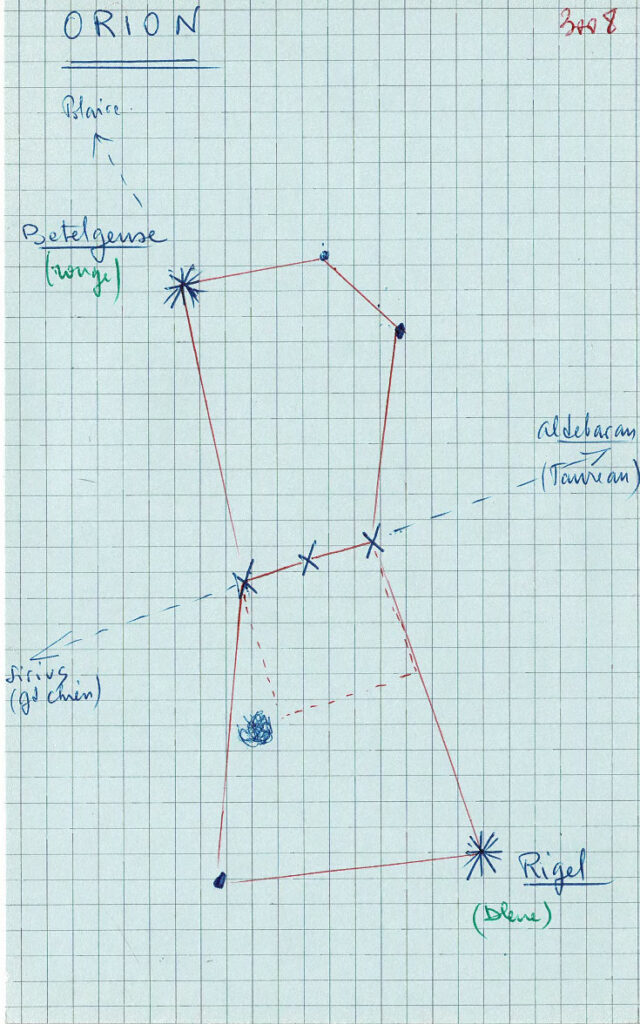 ORION
Blaise
Betelgeuse
(rouge)
aldebaran
(Taureau)
Sirius
(gd chien)
Rigel
(Bleue)